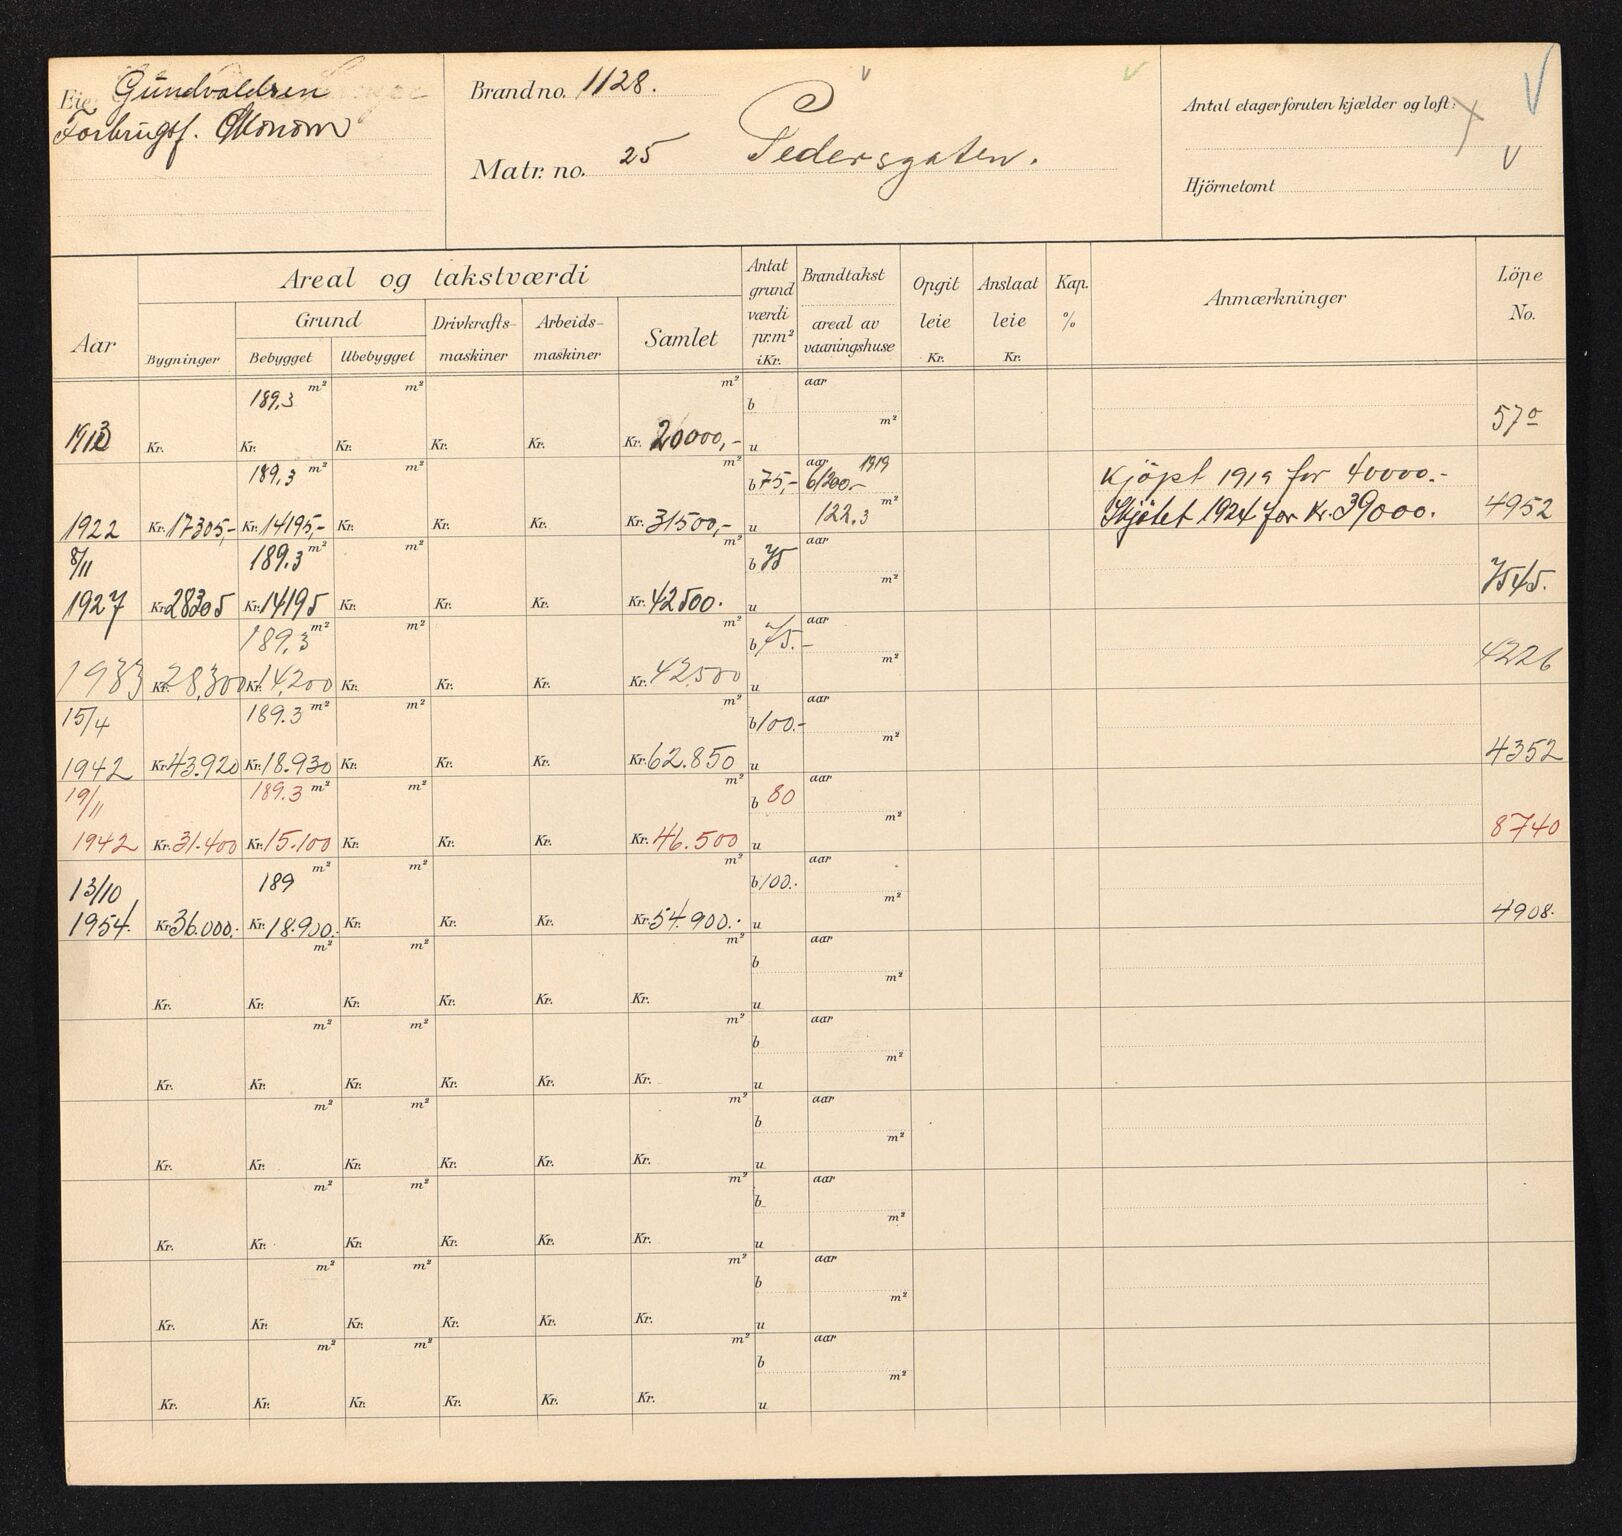 Eier Gundvaldsen
Forbrugsf. Økonom
Brand no. 1128.
Matr. no. 25 Pedersgaten.
Antal etager foruten kjælder og loft:
Hjörnetomt
Aar
Areal og takstværdi
Bygninger
Grund
Bebygget
Ubebygget
Drivkrafts-maskiner
Arbeids-maskiner
Samlet
Antat grund værdi pr.m² i Kr.
Brandtakst
areal av vaaningshuse
Opgit leie Kr.
Anslaat leie Kr.
Kap. %
Anmærkninger
Löpe No.
189,3 m² m² m² aar
b m²
1913 Kr. Kr. Kr. Kr. Kr. Kr. 20000,- u 570
189,3 m² m² m² aar 1919
b 75,- 61200,- Kjöpt 1919 for 40000.-
122,3 m²
1922 Kr. 17305,- Kr. 14195,- Kr. Kr. Kr. Kr. 31500,- u Skjötet 1924 for Kr. 39000. 4952
8/11 189.3 m² m² m² b 75 aar
m²
1927 Kr. 28305 Kr. 14195 Kr. Kr. Kr. Kr. 42500. u 7545.
189,3 m² m² m² b 75.- aar
m²
1933 Kr. 28,300 Kr. 14,200 Kr. Kr. Kr. Kr. 42500 u 4226
15/4 189.3 m² m² m² b 100.- aar
m²
1942 Kr. 43.920 Kr. 18.930 Kr. Kr. Kr. Kr. 62.850 u 4352
19/11 189.3 m² m² m² b 80 aar
m²
1942 Kr. 31.400 Kr. 15.100 Kr. Kr. Kr. Kr. 46.500 u 8740
13/10 189 m² m² m² b 100. aar
m²
1954. Kr. 36.000.- Kr. 18.900.- Kr. Kr. Kr. Kr. 54.900.- u 4908.
m² m² m² b aar
m²
Kr. Kr. Kr. Kr. Kr. Kr. u
m² m² m² b aar
m²
Kr. Kr. Kr. Kr. Kr. Kr. u
m² m² m² b aar
m²
Kr. Kr. Kr. Kr. Kr. Kr. u
m² m² m² b aar
m²
Kr. Kr. Kr. Kr. Kr. Kr. u
m² m² m² b aar
m²
Kr. Kr. Kr. Kr. Kr. Kr. u
m² m² m² b aar
m²
Kr. Kr. Kr. Kr. Kr. Kr. u